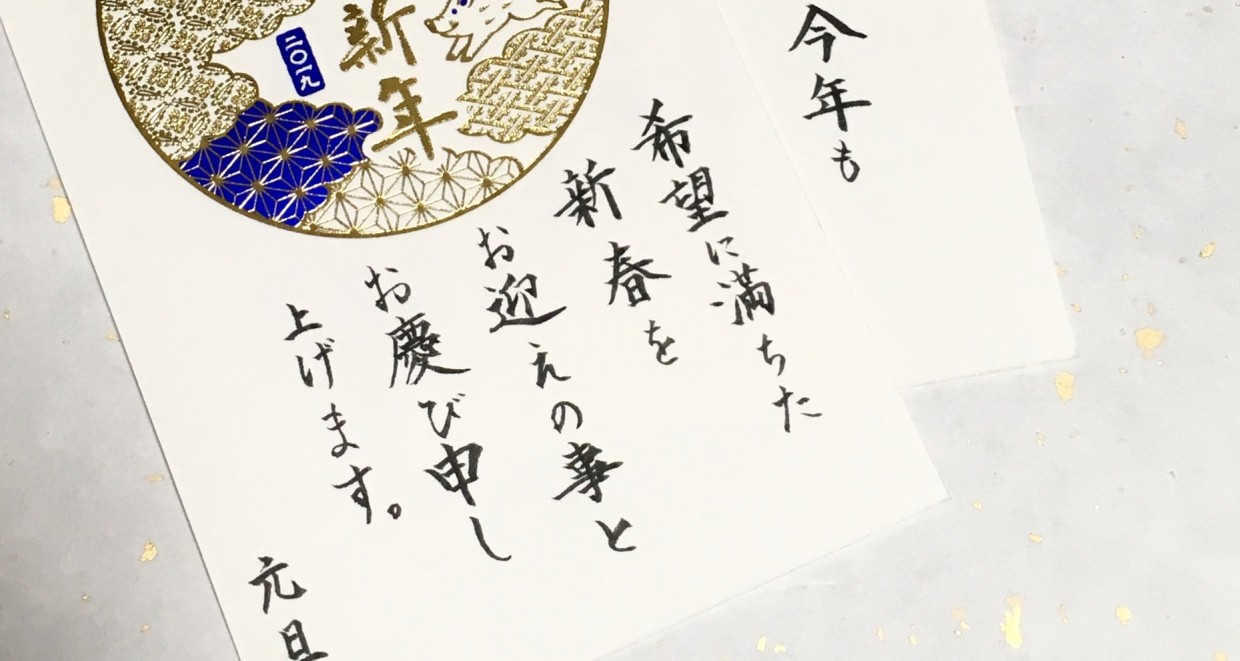 新年
二〇一九
希望に満ちた
新春を
お迎えの事と
お慶び申し
上げます。
元旦
今年も